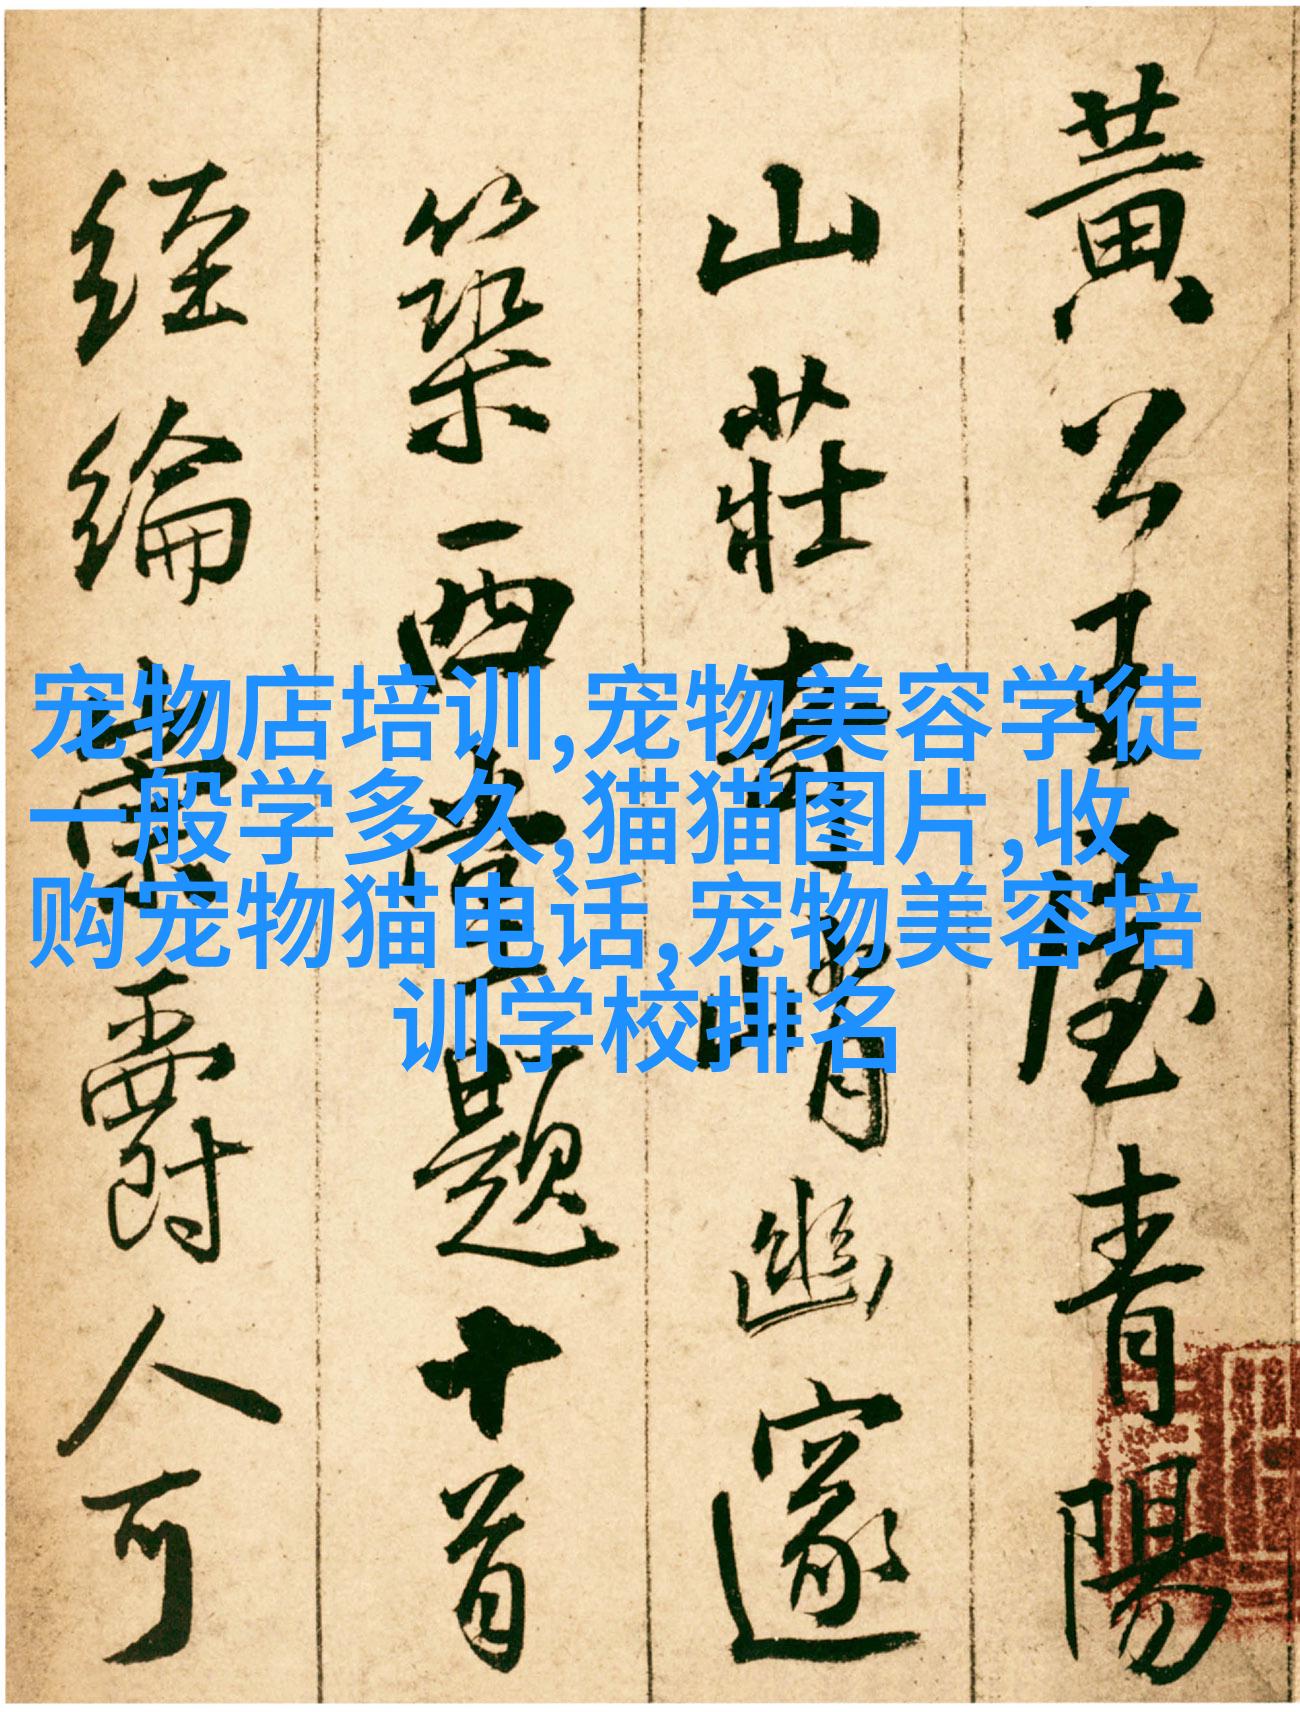 黄公王屋青陽
山莊奇峭幽邃
築西堂題十首
經綸 爵人可
宠物店培训,宠物美容学徒
一般学多久,猫猫图片,收
购宠物猫电话,宠物美容培
训学校排名